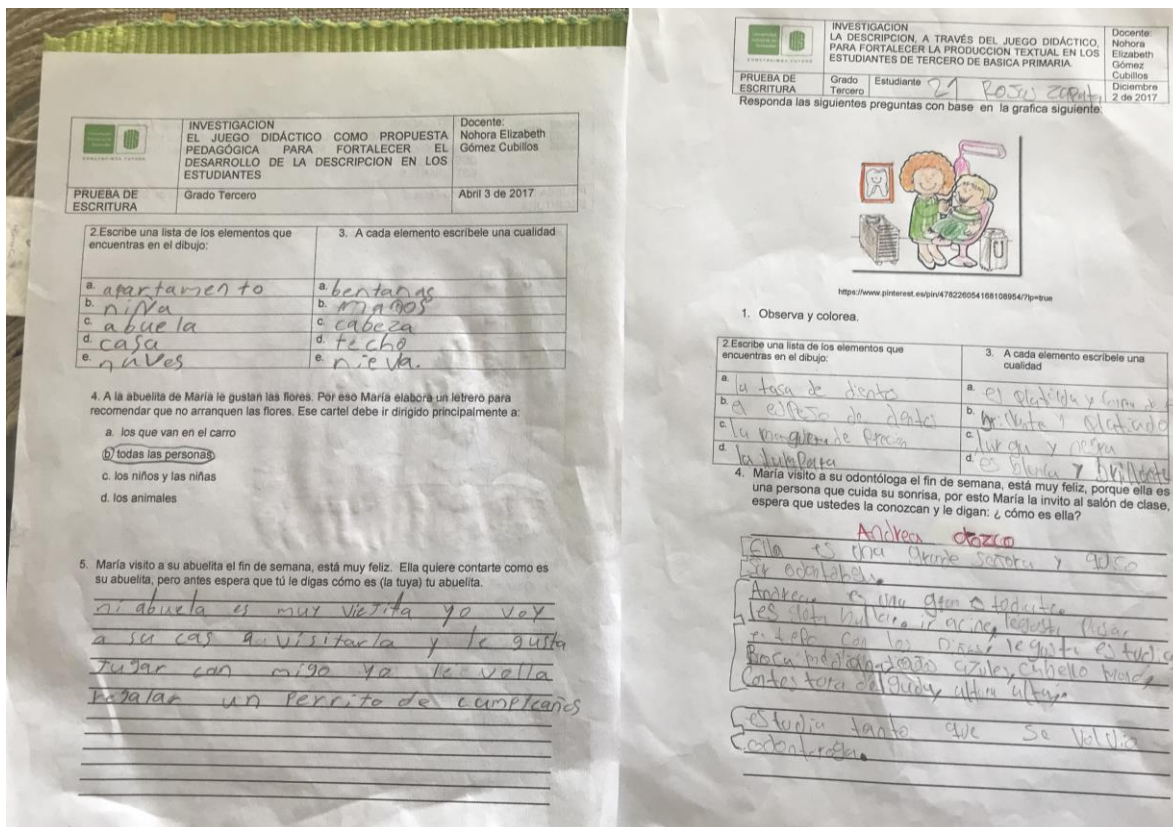 INVESTIGACION
EL JUEGO DIDÁCTICO COMO PROPUESTA
PEDAGÓGICA PARA FORTALECER EL
DESARROLLO DE LA DESCRIPCION EN LOS
ESTUDIANTES
Docente:
Nohora Elizabeth
Gómez Cubillos
PRUEBA DE
ESCRITURA
Grado Tercero
Abril 3 de 2017
2.Escribe una lista de los elementos que
encuentras en el dibujo:
3. A cada elemento escríbele una cualidad
a. apartamento
a. bentanas
b. niña
b. manos
c. abuela
c. cabeza
d. casa
d. techo
e. nuves
e. nieva.
4. A la abuelita de María le gustan las flores. Por eso María elabora un letrero para
recomendar que no arranquen las flores. Ese cartel debe ir dirigido principalmente a:
a. los que van en el carro
b) todas las personas
c. los niños y las niñas
d. los animales
5. María visito a su abuelita el fin de semana, está muy feliz. Ella quiere contarte como es
su abuelita, pero antes espera que tú le digas cómo es (la tuya) tu abuelita.
mi abuela es muy viejita yo voy
a su cas a visitarla y le gusta
jugar con migo yo le
regalar un perrito de cumpleaños
INVESTIGACION
LA DESCRIPCION, A TRAVÉS DEL JUEGO DIDÁCTICO,
PARA FORTALECER LA PRODUCCION TEXTUAL EN LOS
ESTUDIANTES DE TERCERO DE BASICA PRIMARIA.
Docente:
Nohora
Elizabeth
Gómez
Cubillos
PRUEBA DE
ESCRITURA
Grado
Tercero
Estudiante 21
Diciembre
2 de 2017
Responda las siguientes preguntas con base en la grafica siguiente:
https://www.pinterest.es/pin/478226054168108954/?lp=true
1. Observa y colorea.
2.Escribe una lista de los elementos que
encuentras en el dibujo:
3. A cada elemento escríbele una
cualidad
a. la tasa de dientes
a. es
b. el espejo de dentes
b. brillante y platiado
c. la manguera de
c. larga y negra
d. la
d. es blanca y brillante
4. María visito a su odontóloga el fin de semana, está muy feliz, porque ella es
una persona que cuida su sonrisa, por esto María la invito al salón de clase,
espera que ustedes la conozcan y le digan: ¿ cómo es ella?
Andrea orozco
Ella es una señora y
Ser
es una gran
les
con los le gusta
azules, cabello
altura
estudia tanto que se volvia